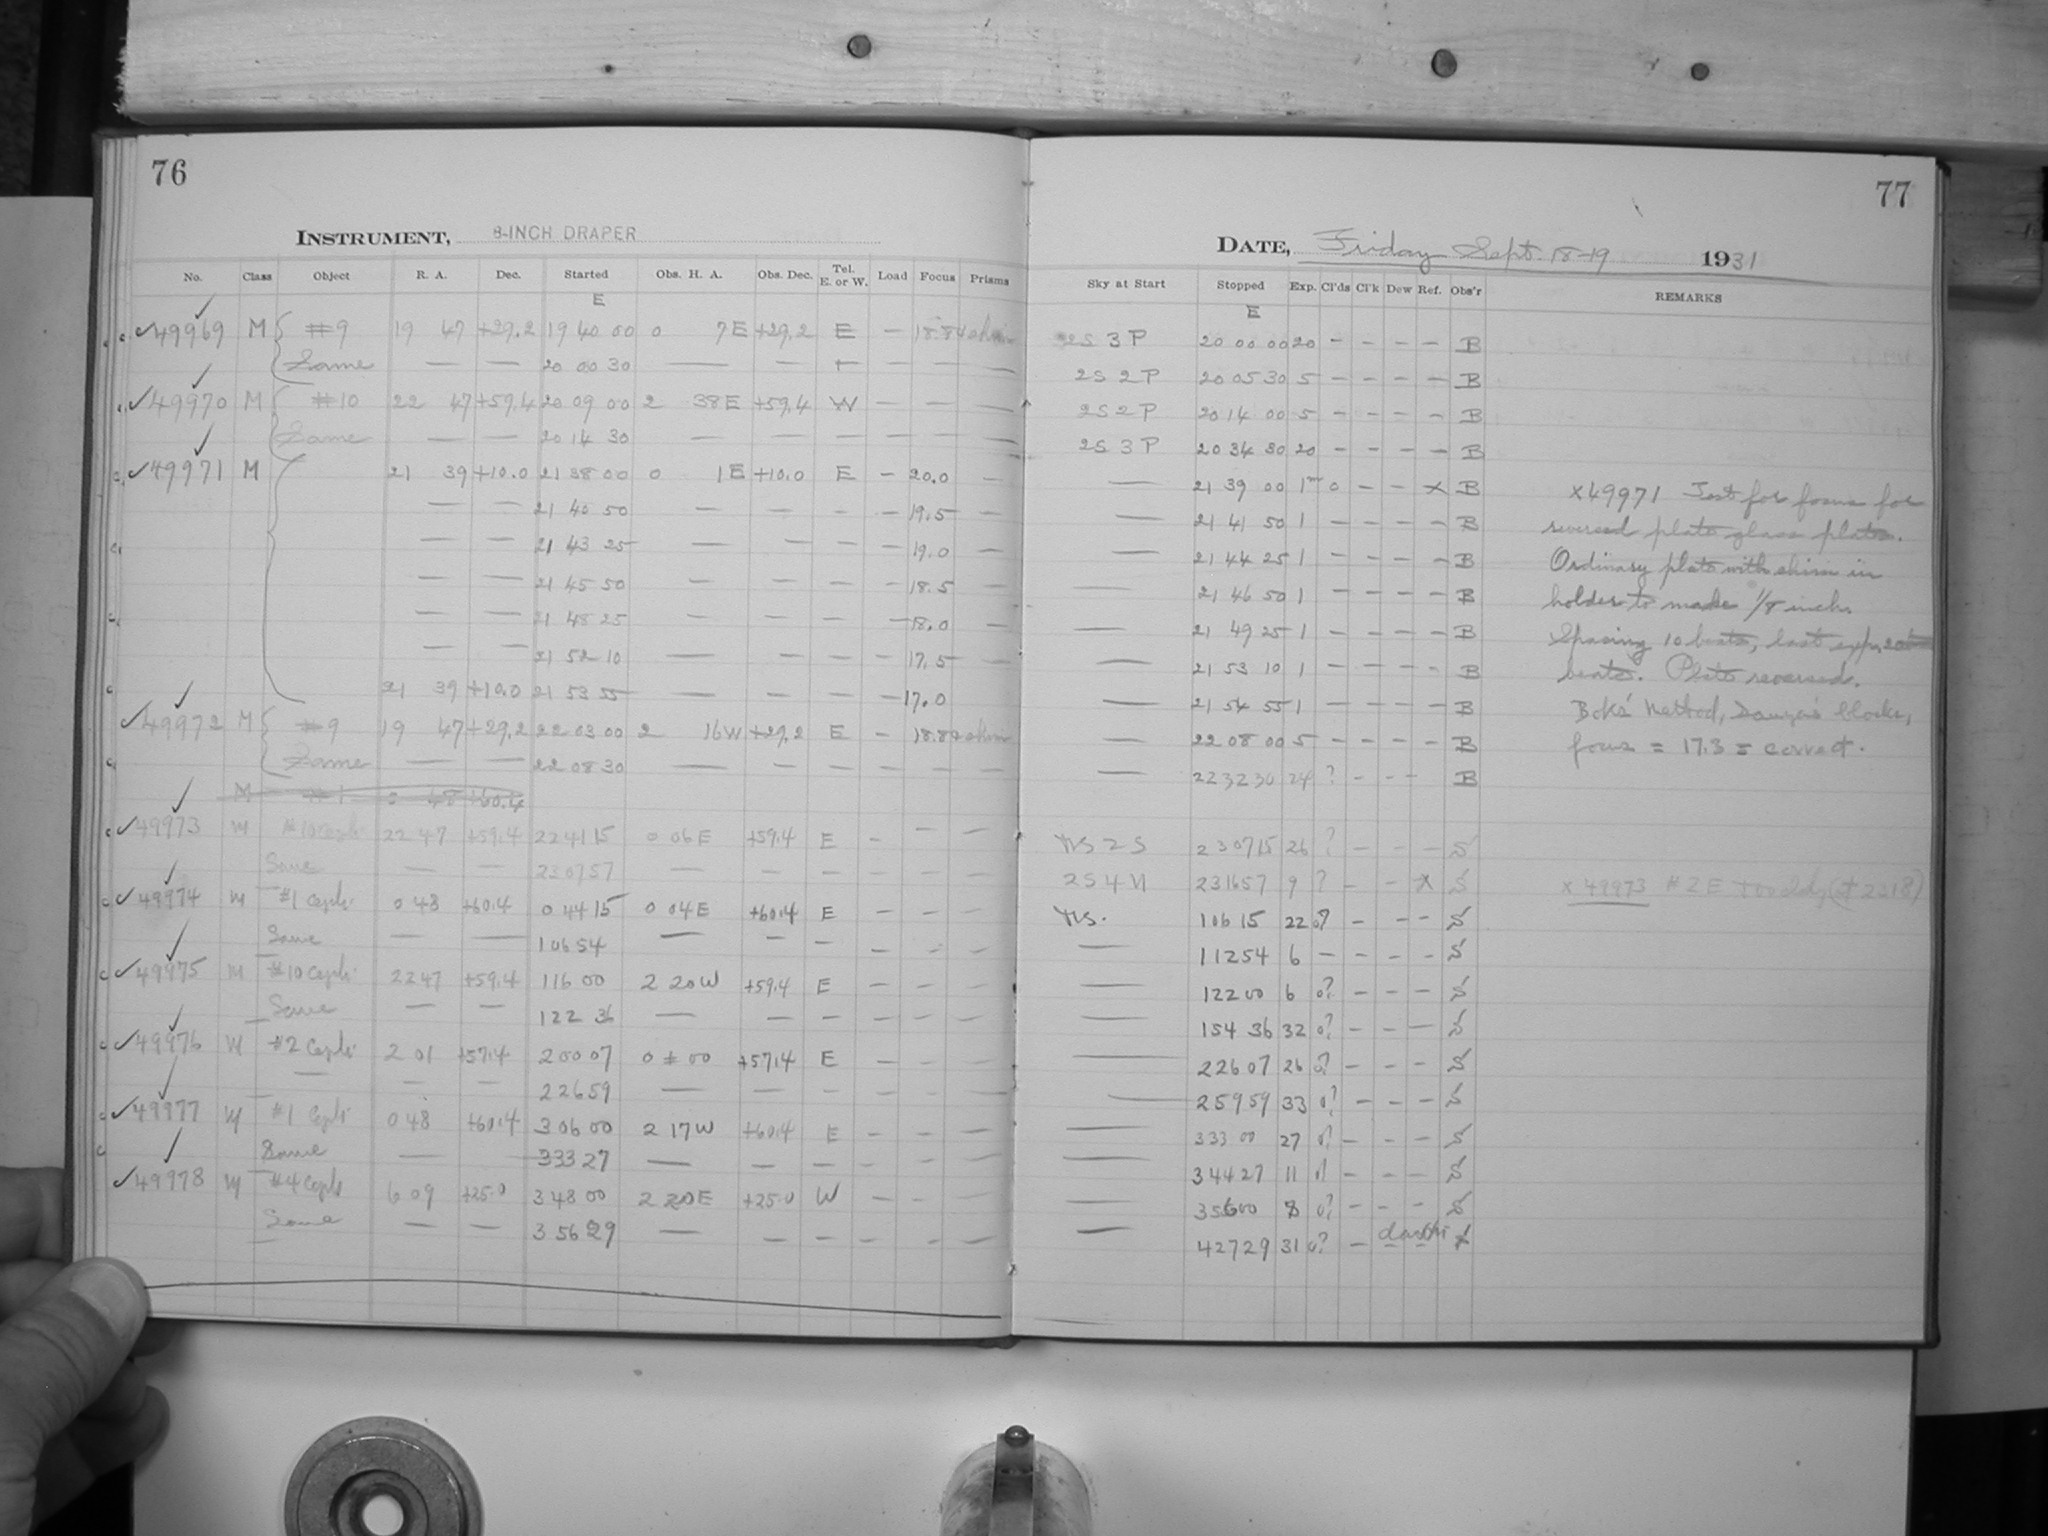 76
INSTRUMENT, 8-INCH DRAPER
No. Class Object R. A. Dec. Started Obs. H. A. Obs. Dec. Tel. E. or W. Load Focus Prisms
E
✓49969 M #9 19 47 +29.2 19 40 00 0 7E +29.2 E — 18.84
Same — — 20 00 30 — — — — —
✓49970 M #10 22 47 +59.4 20 09 00 2 38E +59.4 W — — —
Same — — 20 14 30 — — — — — —
✓49971 M 21 39 +10.0 21 38 00 0 1E +10.0 E — 20.0 —
— — 21 40 50 — — — — 19.5 —
— — 21 43 25 — — — — 19.0 —
— — 21 45 50 — — — — 18.5 —
— — 21 48 25 — — — — 18.0 —
— — 21 52 10 — — — — 17.5 —
21 39 +10.0 21 53 55 — — — — 17.0
✓49972 M #9 19 47 +29.2 22 03 00 2 16W +29.2 E — 18.84
Same — — 22 08 30 — — — — — —
M #1 0 48 +60.4
✓49973 M #10 Ceph. 22 47 +59.4 22 41 15 0 06E +59.4 E — — —
Same — — 23 07 57 — — — — — —
✓49974 M #1 Ceph. 0 48 +60.4 0 44 15 0 04E +60.4 E — — —
Same — — 1 06 54 — — — — — —
✓49975 M #10 Ceph. 22 47 +59.4 1 16 00 2 20W +59.4 E — — —
Same — — 1 22 36 — — — — — —
✓49976 M #2 Ceph. 2 01 +57.4 2 00 07 0 ± 00 +57.4 E — — —
— — — 2 26 59 — — — — — —
✓49977 M #1 Ceph. 0 48 +60.4 3 06 00 2 17W +60.4 E — — —
Same — — 3 33 27 — — — — — —
✓49978 M #4 Ceph. 6 09 +25.0 3 48 00 2 20E +25.0 W — — —
Same — — 3 56 29 — — — — — —
77
DATE, Friday Sept. 18-19 1931
Sky at Start Stopped Exp. Cl'ds Cl'k Dew Ref. Obs'r REMARKS
E
2S 3P 20 00 00 20 — — — — B
2S 2P 20 05 30 5 — — — — B
2S 2P 20 14 00 5 — — — — B
2S 3P 20 34 30 20 — — — — B
— 21 39 00 1m 0 — — x B x49971 Test for focus for
— 21 41 50 1 — — — — B reversed plate glass plates.
— 21 44 25 1 — — — — B Ordinary plate with shim in
— 21 46 50 1 — — — — B holder to make 1/8 inch.
— 21 49 25 1 — — — — B Spacing 10 beats, last exp. 20
— 21 53 10 1 — — — — B beats. Plate reversed.
— 21 54 55 1 — — — — B Bok's Method, Sawyer's blocks,
22 08 00 5 — — — — B focus = 17.3 = correct.
— 22 32 30 24 ? — — — B
2S 23 07 15 26 ? — — — S
2S 4 23 16 57 9 ? — — x S x 49973 #2E too cldy (at 2318)
1 06 15 22 0? — — — S
— 1 12 54 6 — — — — S
— 1 22 00 6 0? — — — S
— 1 54 36 32 0? — — — S
— 2 26 07 26 0? — — — S
— 2 59 59 33 0? — — — S
— 3 33 00 27 0? — — — S
— 3 44 27 11 — — — S
— 3 56 00 8 0? — — — S
— 4 27 29 31 0? —